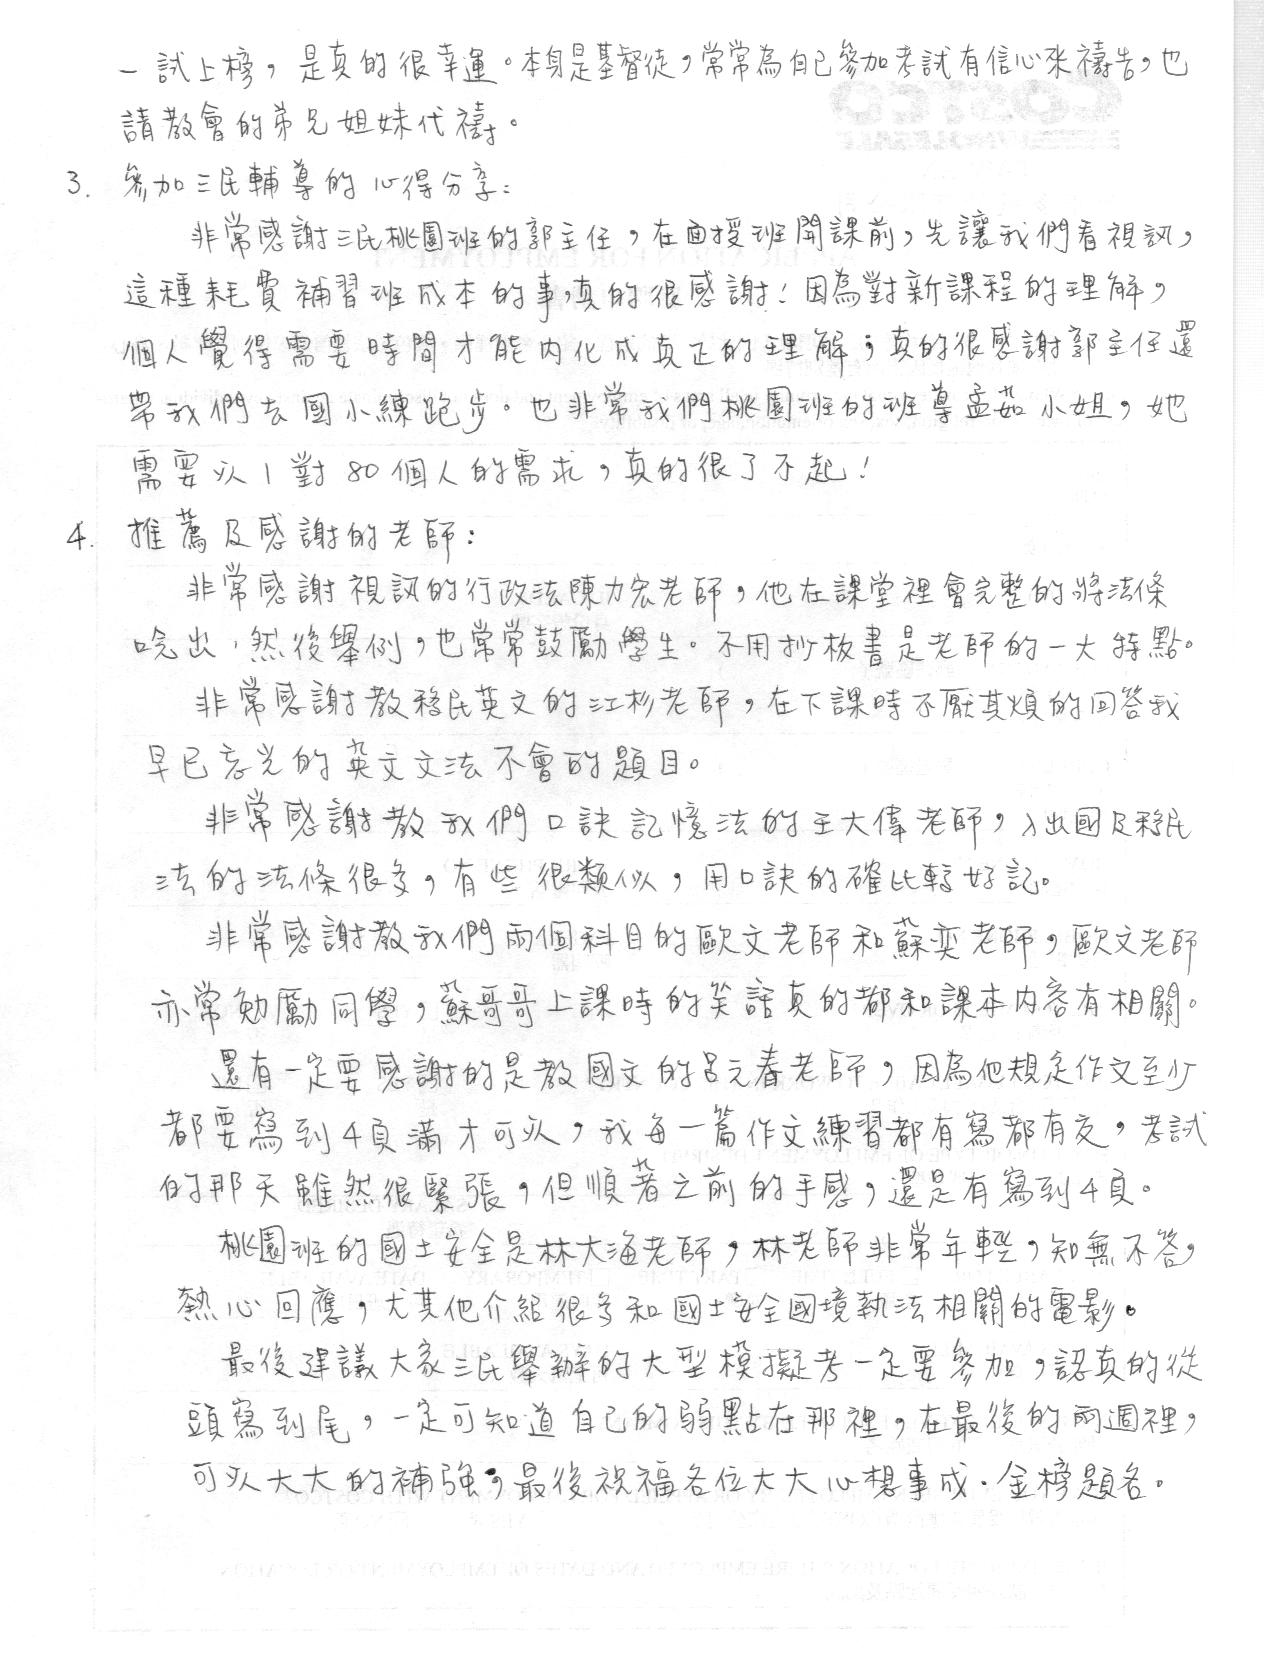 一試上榜，是真的很幸運。本身是基督徒，常常為自己參加考試有信心來禱告，也
請教會的弟兄姐妹代禱。
3. 參加三民輔導的心得分享：
非常感謝三民桃園班的郭主任，在面授班開課前，先讓我們看視訊，
這種耗費補習班成本的事，真的很感謝！因為對新課程的理解，
個人覺得需要時間才能內化成真正的理解；真的很感謝郭主任還
帶我們去國小練跑步。也非常我們桃園班的班導孟茹小姐，她
需要以1對80個人的需求，真的很了不起！
4. 推薦及感謝的老師：
非常感謝視訊的行政法陳力宏老師，他在課堂裡會完整的將法條
唸出，然後舉例，也常常鼓勵學生。不用抄板書是老師的一大特點。
非常感謝教移民英文的江杉老師，在下課時不厭其煩的回答我
早已忘光的英文文法不會的題目。
非常感謝教我們口訣記憶法的王大偉老師，入出國及移民
法的法條很多，有些很類似，用口訣的確比較好記。
非常感謝教我們兩個科目的歐文老師和蘇奕老師，歐文老師
亦常勉勵同學，蘇哥哥上課時的笑話真的都和課本內容有相關。
還有一定要感謝的是教國文的呂元春老師，因為他規定作文至少
都要寫到4頁滿才可以，我每一篇作文練習都有寫都有交，考試
的那天雖然很緊張，但順著之前的手感，還是有寫到4頁。
桃園班的國土安全是林大海老師，林老師非常年輕，知無不答，
熱心回應，尤其他介紹很多和國土安全國境執法相關的電影。
最後建議大家三民舉辦的大型模擬考一定要參加，認真的從
頭寫到尾，一定可知道自己的弱點在那裡，在最後的兩週裡，
可以大大的補強，最後祝福各位大大心想事成．金榜題名。